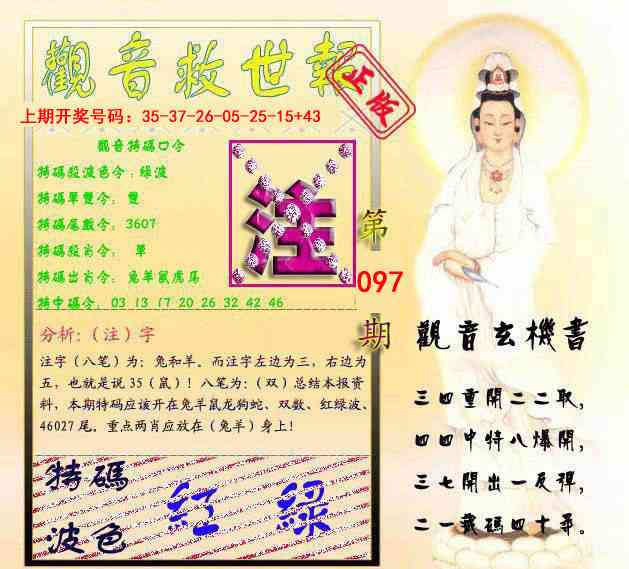 觀音救世報
正版
上期开奖号码：35-37-26-05-25-15+43
觀音特碼口令
特碼殺波色令：綠波
特碼單雙令：雙
特碼尾數令：3607
特碼殺肖令：單
特碼出肖令：兔羊鼠虎馬
特中碼令：03 13 17 20 26 32 42 46
注
第
097
期
分析:（注）字
注字（八笔）为：兔和羊。而注字左边为三，右边为
五，也就是说 35（鼠）！八笔为:（双）总结本报资
料，本期特码应该开在兔羊鼠龙狗蛇、双数、红绿波、
46027 尾。重点两肖应放在（兔羊）身上!
特碼
波色
紅 綠
觀音玄機書
三四重開二二取，
四四中特八爆開，
三七開出一反彈，
二一義碼四十尋。